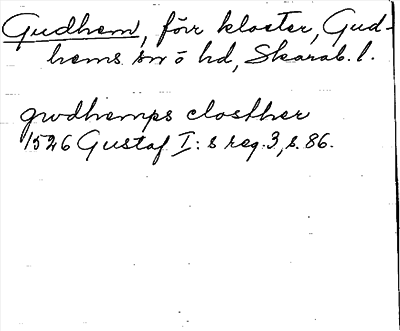 Gudhem, förr kloster, Gud-
hems sn o hd, Skarab. l.
gwdhemps closther
1526 Gustaf I:s reg. 3, s. 86.